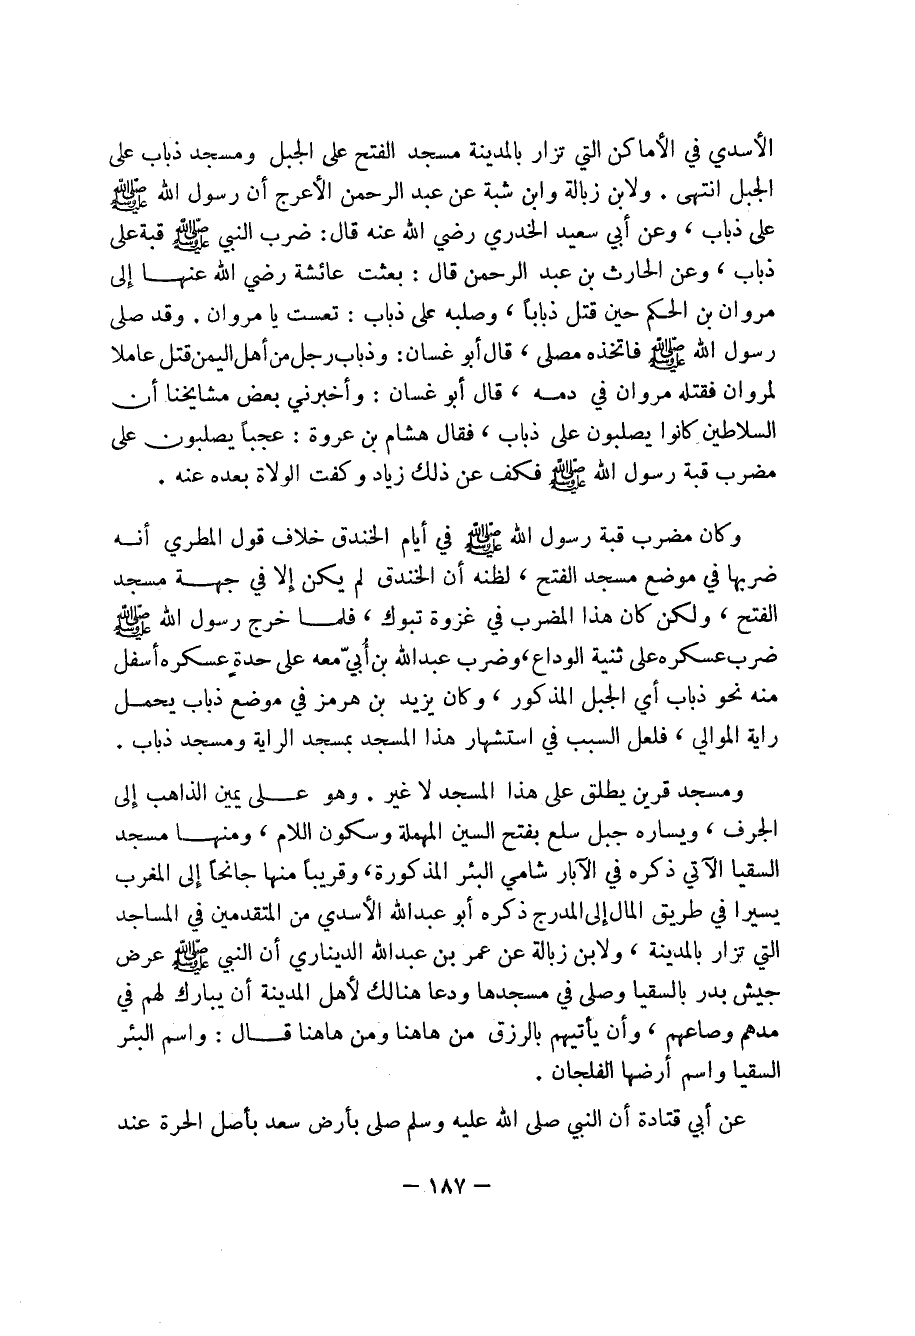 الأسدي في الأماكن التي تزار بالمدينة مسجد الفتح على الجبل ومسجد ذباب على
الجبل انتهى . ولابن زبالة وابن شبة عن عبد الرحمن الأعرج أن رسول الله ﷺ
على ذباب ، وعن أبي سعيد الخدري رضي الله عنه قال : ضرب النبي ﷺ قبة على
ذباب ، وعن الحارث بن عبد الرحمن قال : بعثت عائشة رضي الله عنهـا إلى
مروان بن الحكم حين قتل ذباباً ، وصلبه على ذباب : تعست يا مروان . وقد صلى
رسول الله ﷺ فاتخذه مصلى ، قال أبو غسان : وذباب رجل من أهل اليمن قتل عاملا
لمروان فقتله مروان في دمـه ، قال أبو غسان : وأخبرني بعض مشايخنا أن
السلاطين كانوا يصلبون على ذباب ، فقال هشام بن عروة : عجباً يصلبون على
مضرب قبة رسول الله ﷺ فكف عن ذلك زياد وكفت الولاة بعده عنه .
وكان مضرب قبة رسول الله ﷺ في أيام الخندق خلاف قول المطري أنـه
ضربها في موضع مسجد الفتح ، لظنه أن الخندق لم يكن إلا في جهـة مسجد
الفتح ، ولكن كان هذا المضرب في غزوة تبوك ، فلمـا خرج رسول الله ﷺ
ضرب عسكره على ثنية الوداع ، وضرب عبدالله بن أُبيّ معه على حدةٍ عسكره أسفل
منه نحو ذباب أي الجبل المذكور ، وكان يزيد بن هرمز في موضع ذباب يحمـل
راية الموالي ، فلعل السبب في استشهار هذا المسجد بمسجد الراية ومسجد ذباب .
ومسجد قرين يطلق على هذا المسجد لا غير . وهو عـلى يمين الذاهب إلى
الجرف ، ويساره جبل سلع بفتح السين المهملة وسكون اللام ، ومنهـا مسجد
السقيا الآتي ذكره في الآبار شامي البئر المذكورة ، وقريباً منها جانحاً إلى المغرب
يسيرا في طريق المال إلى المدرج ذكره أبو عبدالله الأسدي من المتقدمين في المساجد
التي تزار بالمدينة ، ولابن زبالة عن عمر بن عبدالله الديناري أن النبي ﷺ عرض
جيش بدر بالسقيا وصلى في مسجدها ودعا هنالك لأهل المدينة أن يبارك لهم في
مدهم وصاعهم ، وأن يأتيهم بالرزق من هاهنا ومن هاهنا قـال : واسم البئر
السقيا واسم أرضها الفلجان .
عن أبي قتادة أن النبي صلى الله عليه وسلم صلى بأرض سعد بأصل الحرة عند
– ١٨٧ –